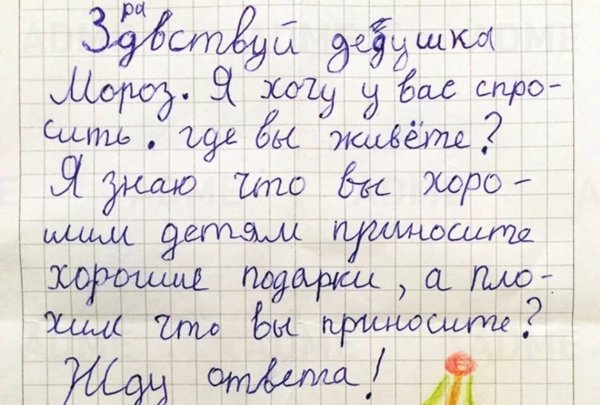 Здраствуй дедушка
Мороз. Я хочу у вас спро-
сить. где вы живёте?
Я знаю что вы хоро-
шим детям приносите
хорошие подарки, а пло-
хим что вы приносите?
Жду ответа!